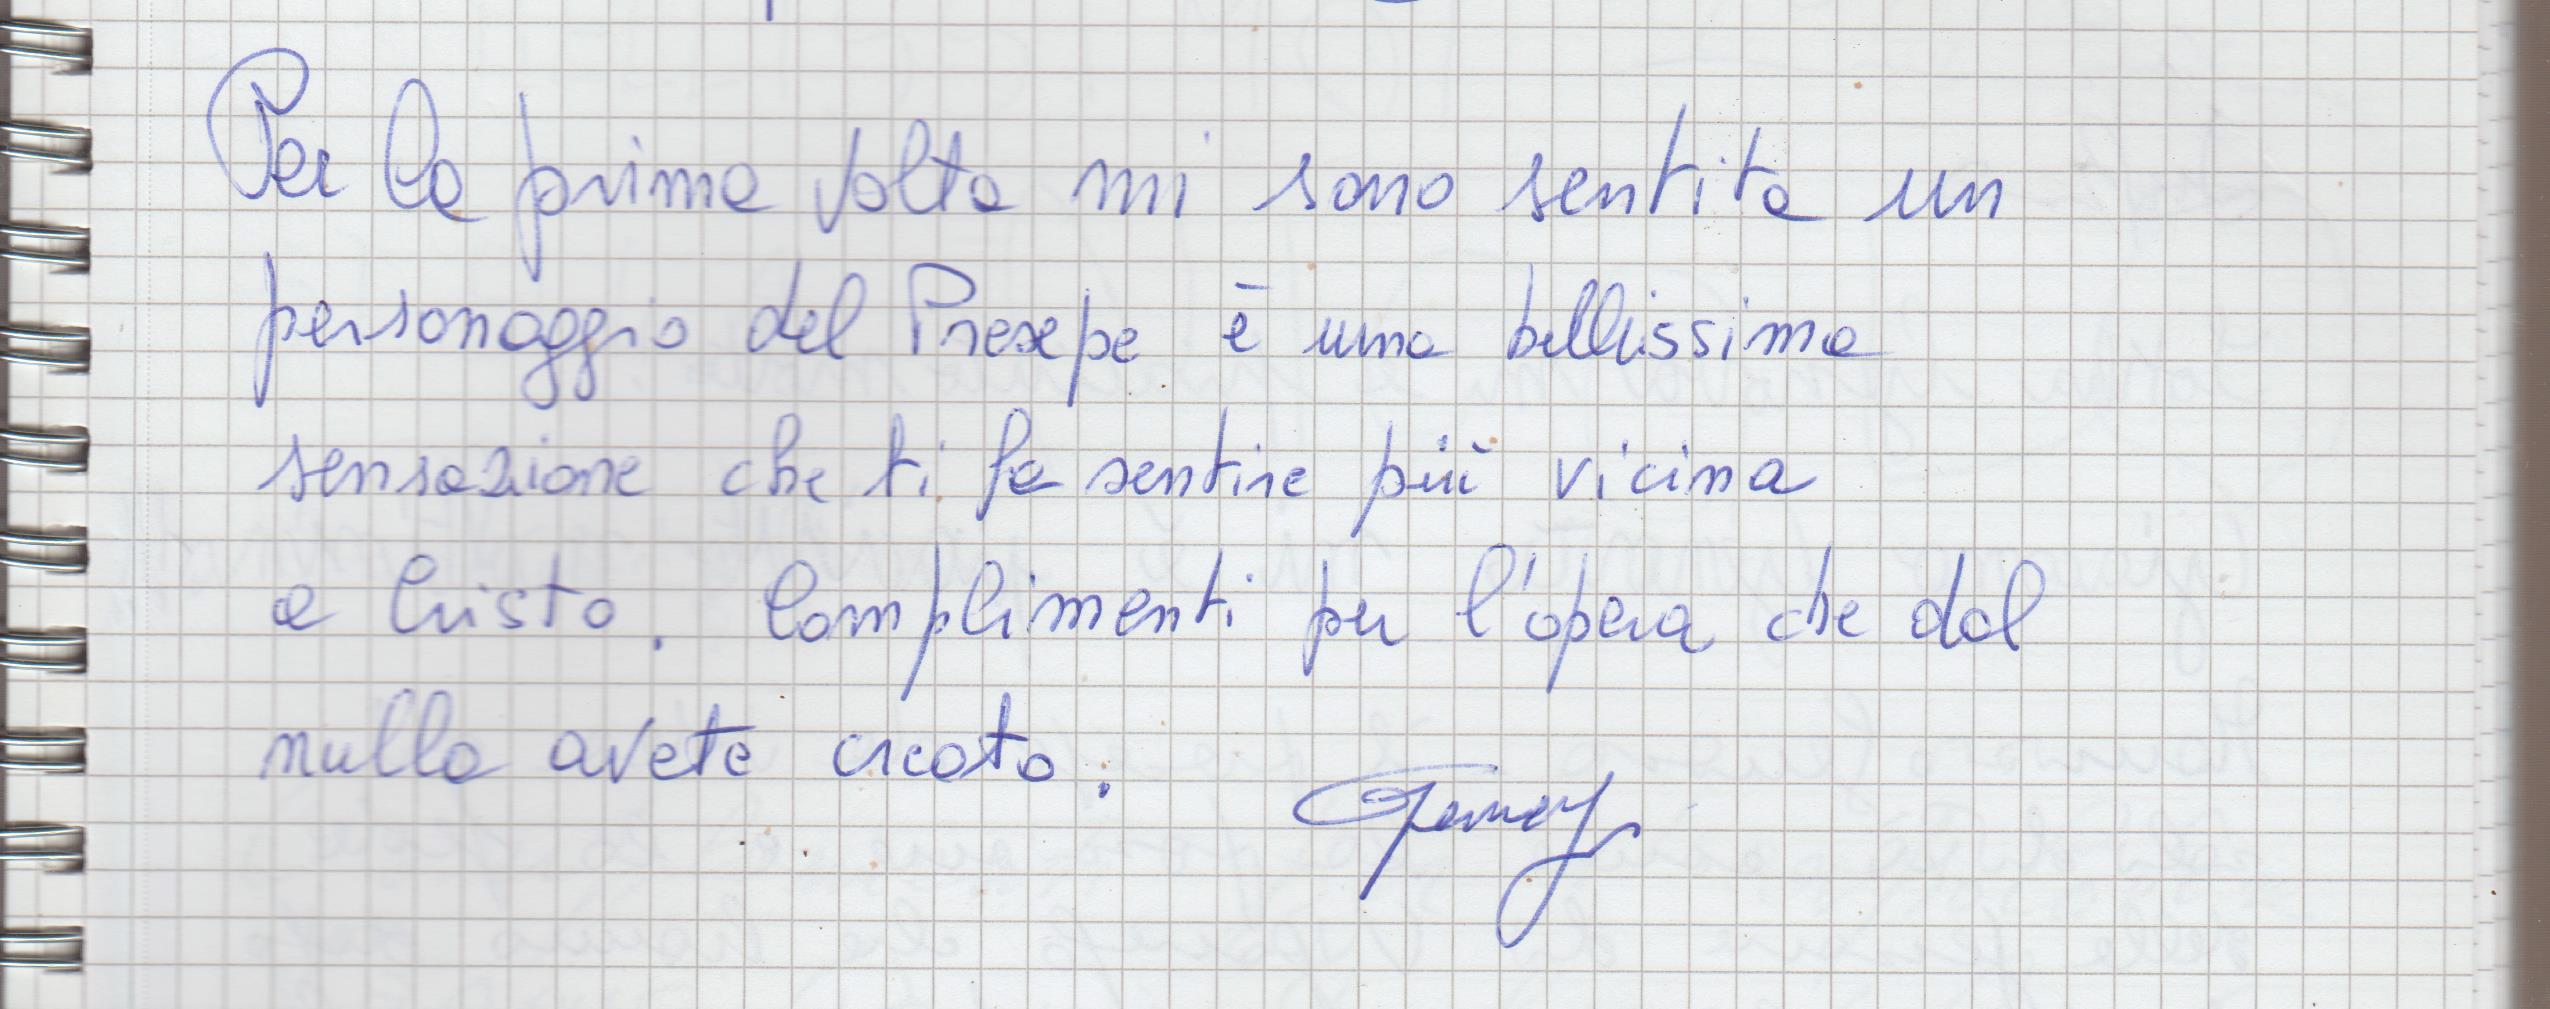 Per la prima volta mi sono sentita un
personaggio del Presepe è una bellissima
sensazione che ti fa sentire più vicina
a Cristo. Complimenti per l'opera che dal
nulla avete creato.